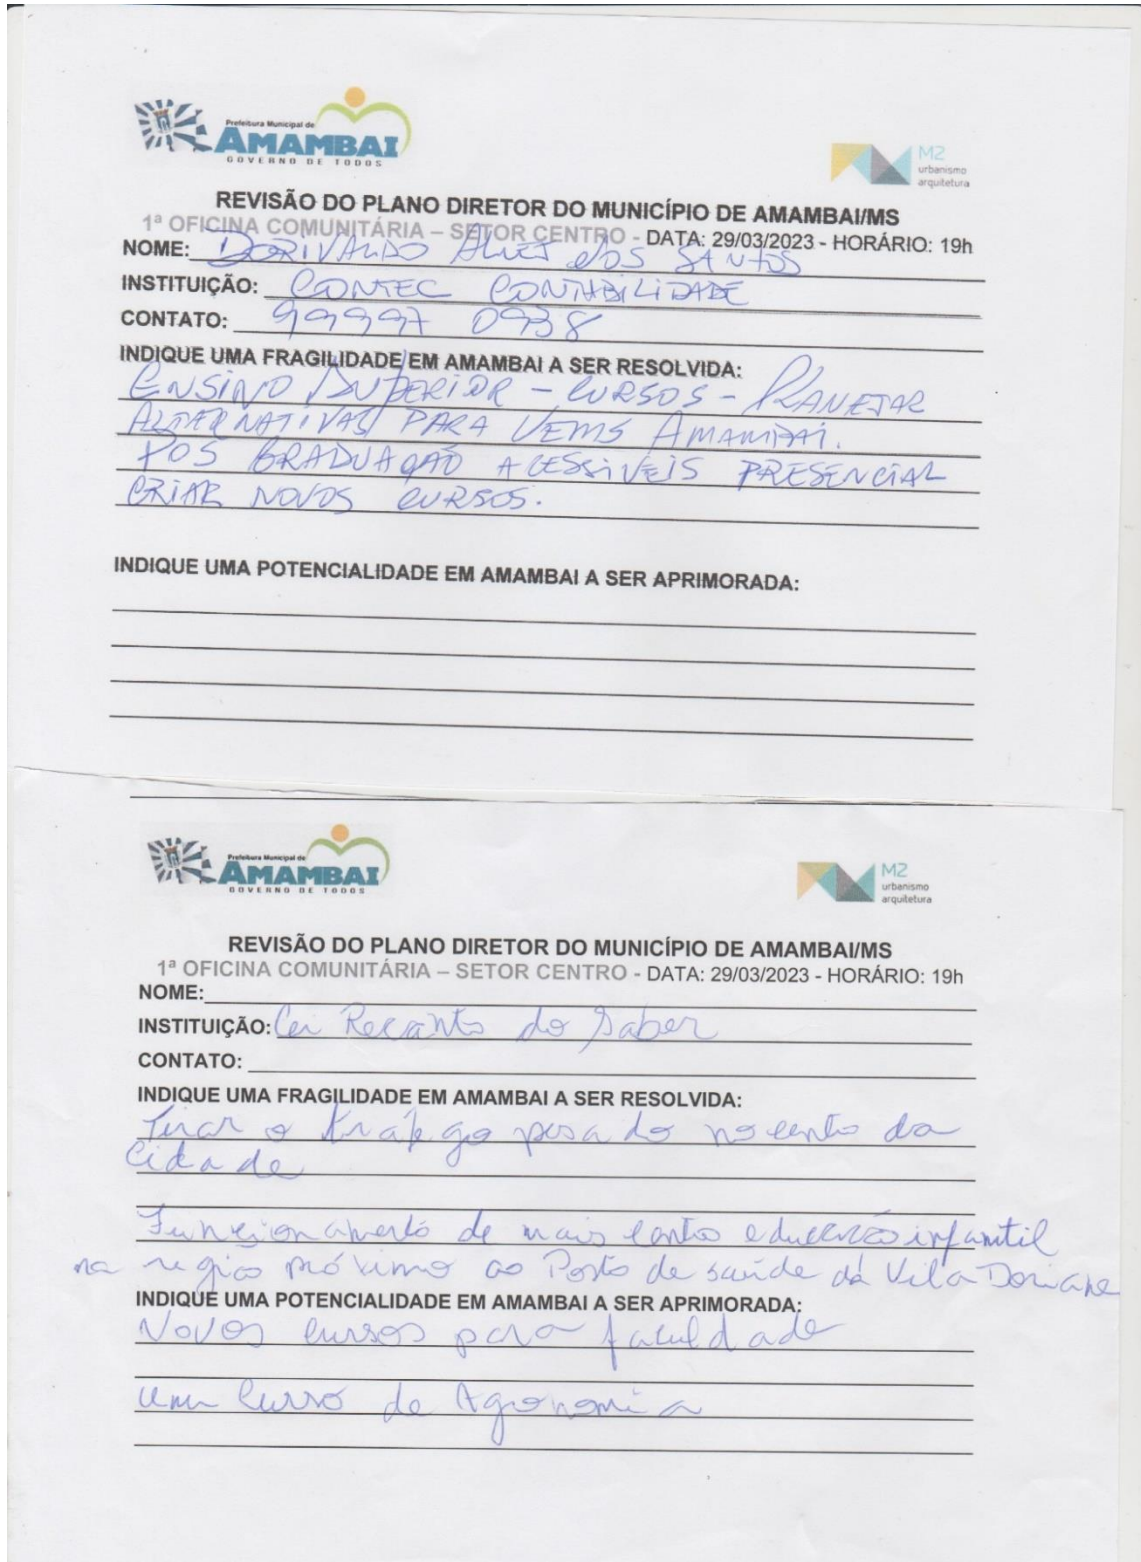 Prefeitura Municipal de
AMAMBAI
GOVERNO DE TODOS
M2
urbanismo
arquitetura
REVISÃO DO PLANO DIRETOR DO MUNICÍPIO DE AMAMBAI/MS
1ª OFICINA COMUNITÁRIA – SETOR CENTRO - DATA: 29/03/2023 - HORÁRIO: 19h
NOME: DORIVALDO ALVES DOS SANTOS
INSTITUIÇÃO: CONTEC CONTABILIDADE
CONTATO: 99997 0938
INDIQUE UMA FRAGILIDADE EM AMAMBAI A SER RESOLVIDA:
ENSINO SUPERIOR - CURSOS - PLANEJAR
ALTERNATIVAS PARA UEMS AMAMBAI.
POS GRADUAÇÃO ACESSIVEIS PRESENCIAL
CRIAR NOVOS CURSOS.
INDIQUE UMA POTENCIALIDADE EM AMAMBAI A SER APRIMORADA:
Prefeitura Municipal de
AMAMBAI
GOVERNO DE TODOS
M2
urbanismo
arquitetura
REVISÃO DO PLANO DIRETOR DO MUNICÍPIO DE AMAMBAI/MS
1ª OFICINA COMUNITÁRIA – SETOR CENTRO - DATA: 29/03/2023 - HORÁRIO: 19h
NOME:
INSTITUIÇÃO: Cei Recanto do Saber
CONTATO:
INDIQUE UMA FRAGILIDADE EM AMAMBAI A SER RESOLVIDA:
Tirar o tráfego pesado no cento da
Cidade
Funcionamento de mais educação infantil
na região próximo ao Posto de saúde da Vila Doriane
INDIQUE UMA POTENCIALIDADE EM AMAMBAI A SER APRIMORADA:
Novos cursos para faculdade
um curso de Agronomia